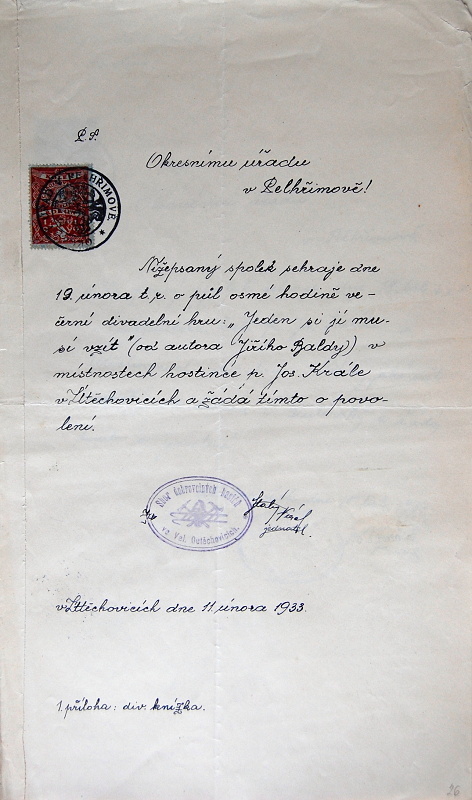 P. P.
Okresnímu úřadu
v Pelhřimově!
PELHŘIMOVĚ
Nížepsaný spolek sehraje dne
12. února t.r. o půl osmé hodině ve-
černí divadelní hru: „Jeden si jí mu-
sí vzít" (od autora Jiřího Baldy) v
místnostech hostince p. Jos. Krále
v Útěchovicích a žádá tímto o povo-
lení.
Sbor dobrovolných hasičů
ve Vel. Outěchovicích.
jednatel.
v Útěchovicích dne 11. února 1933.
1. příloha: div. knížka.
26